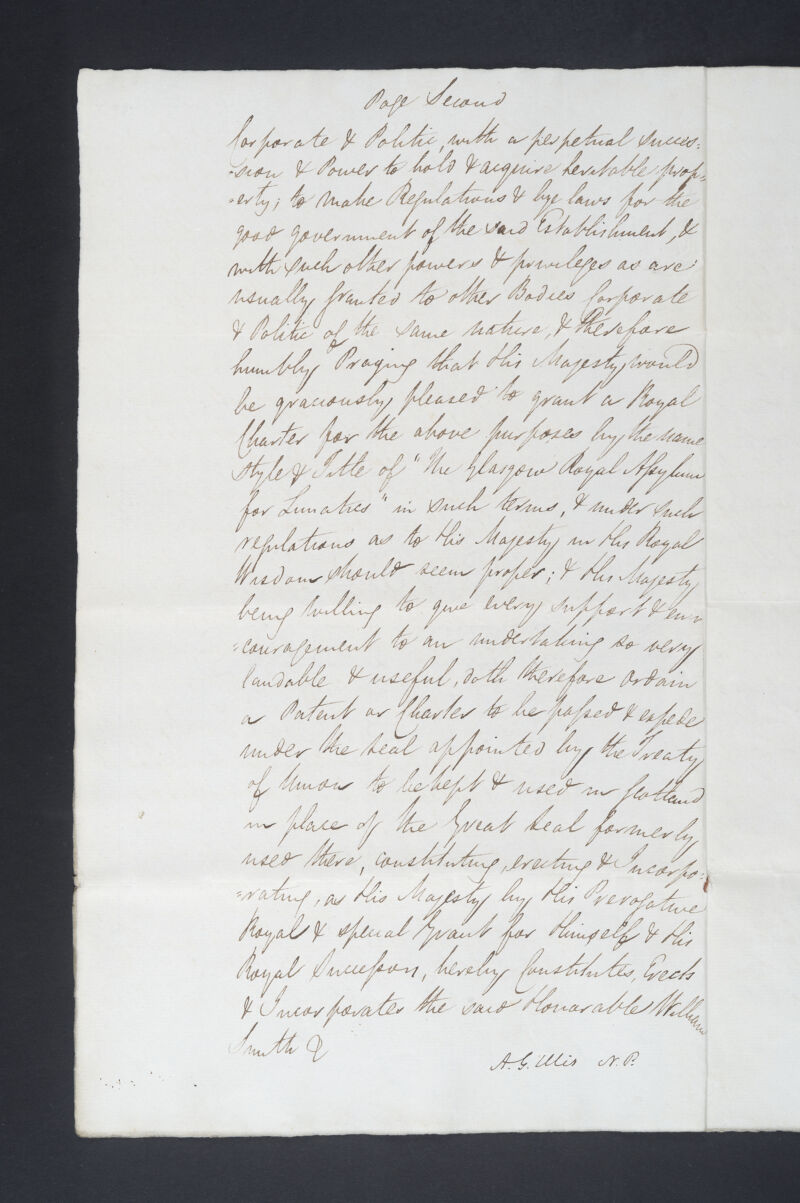 Page Second
Corporate & Politic, with a perpetual succes=
=sion & Power to hold & acquire heritable prop=
=erty; to make Regulations & bye laws for the
good government of the said Establishment, &
with such other powers & privileges as are
usually granted to other Bodies Corporate
& Politic of the same nature, & therefore
humbly Praying that His Majesty would
be graciously pleased to grant a Royal
Charter for the above purposes by the name
Style & Title of "The Glasgow Royal Asylum
for Lunatics" in such terms, & under such
regulations as to His Majesty in His Royal
Wisdom should seem proper; & His Majesty
being willing to give every support & en=
=couragement to an undertaking so very
laudable & useful, doth therefore ordain
a Patent or Charter to be passed & expede
under the seal appointed by the Treaty
of Union to be kept & used in Scotland
in place of the Great Seal formerly
used there, constituting, erecting & Incorpo=
=rating, as His Majesty by His Prerogative
Royal & special Grant for Himself & His
Royal Successors, hereby Constitutes, Erects
& Incorporates the said Honorable William
Smith &
A. Gillis N.P.